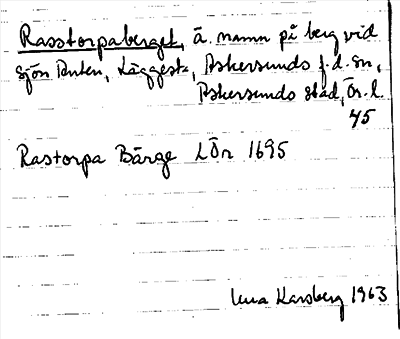 Rasstorpaberget, ä. namn på berg vid
sjön Anten, Läggesta, Askersunds f.d. sn,
Askersunds stad, Ör. l.
45
Rastorpa Bärge LÖr 1695
Lena Karsberg 1963